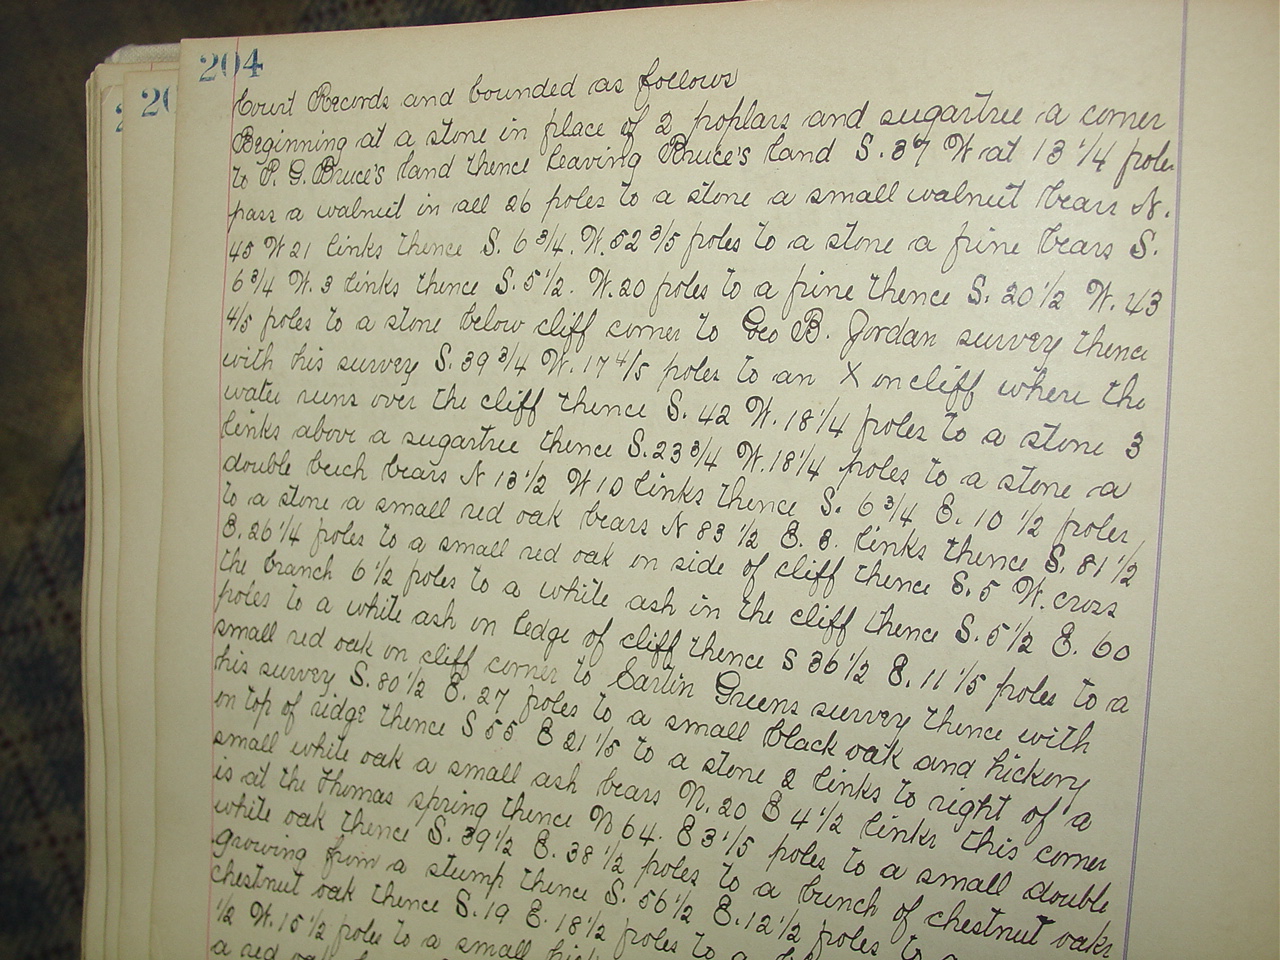 204
Court Records and bounded as follows
Beginning at a stone in place of 2 pophlars and sugartree a corner
to P. G. Bruce's land thence leaving Bruce's land S. 37 W at 13 1/4 poles
pass a walnut in all 26 poles to a stone a small walnut bears N.
45 W 21 links thence S. 6 3/4. W. 52 3/5 poles to a stone a pine bears S.
6 3/4 W. 3 links thence S. 5 1/2. W. 20 poles to a pine thence S. 20 1/2 W. 43
4/5 poles to a stone below cliff corner to Geo B. Jordan survey thence
with his survey S. 39 3/4 W. 17 4/5 poles to an X on cliff where the
water runs over the cliff thence S. 42 W. 18 1/4 poles to a stone 3
links above a sugartree thence S. 23 3/4 W. 18 1/4 poles to a stone a
double beech bears N 13 1/2 W 10 links thence S. 6 3/4 E. 10 1/2 poles
to a stone a small red oak bears N 83 1/2 E. 8. links thence S. 81 1/2
E. 26 1/4 poles to a small red oak on side of cliff thence S. 5 W. cross
the branch 6 1/2 poles to a white ash in the cliff thence S. 5 1/2 E. 60
poles to a white ash on ledge of cliff thence S 36 1/2 E. 11 1/5 poles to a
small red oak on cliff corner to Carlin Greens survey thence with
his survey S. 80 1/2 E. 27 poles to a small black oak and hickory
on top of ridge thence S 55 E 21 1/5 to a stone 2 links to right of a
small white oak a small ash bears N. 20 E 4 1/2 links this corner
is at the Thomas spring thence N 64. E 3 1/5 poles to a small double
white oak thence S. 39 1/2 E. 38 1/2 poles to a bunch of chestnut oaks
growing from a stump thence S. 56 1/2 E. 12 1/2 poles to a
chestnut oak thence S. 19 E. 18 1/2 poles to a
1/2 W. 15 1/2 poles to a small
a red